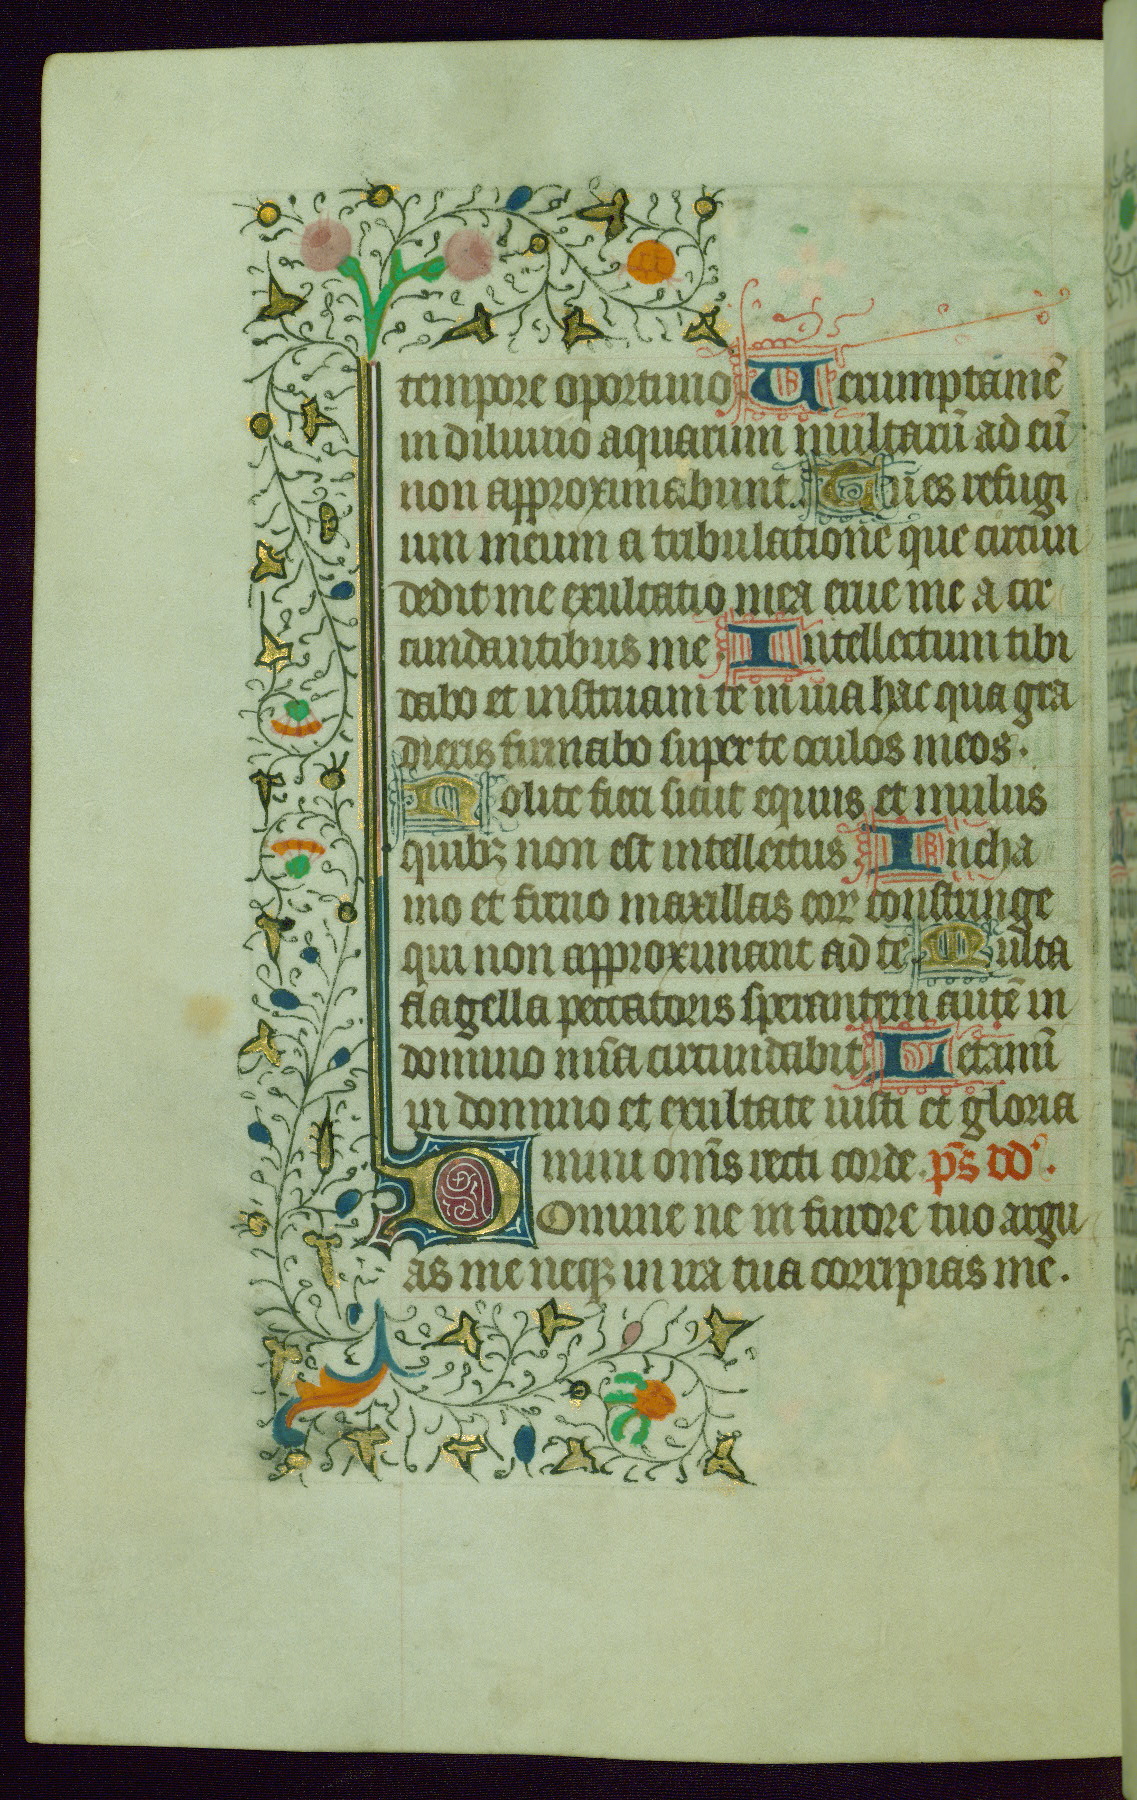 tempore oportuno Uerumptamē
in diluuio aquarum multarū ad eū
non approximabunt. Tu es refugi
um meum a tribulatione que circun
dedit me exultatio mea erue me a cir
cundantibus me Intellectum tibi
dabo et instruam te in uia hac qua gra
dieris firmabo super te oculos meos.
Nolite fieri sicut equus et mulus
quibꝫ non est intellectus In cha
mo et freno maxillas eoꝝ constringe
qui non approximant ad te. Multa
flagella peccatoris sperantem autē in
domino mīa circundabit Letamī
in domino et exultate iusti et gloria
mini om̄s recti corde. ps̄ dd.
Domine ne in furore tuo argu
as me neqꝫ in ira tua corripias me.